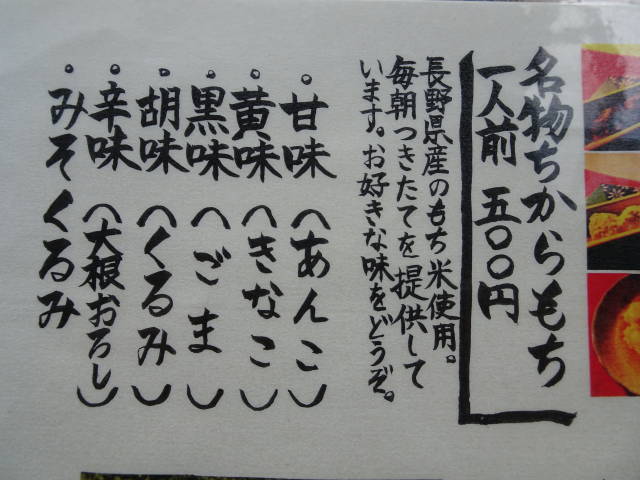 名物ちからもち
一人前 五〇〇円
長野県産のもち米使用。
毎朝つきたてを提供して
います。お好きな味をどうぞ。
・甘味(あんこ)
・黄味(きなこ)
・黒味(ごま)
・胡味(くるみ)
・辛味(大根おろし)
・みそくるみ